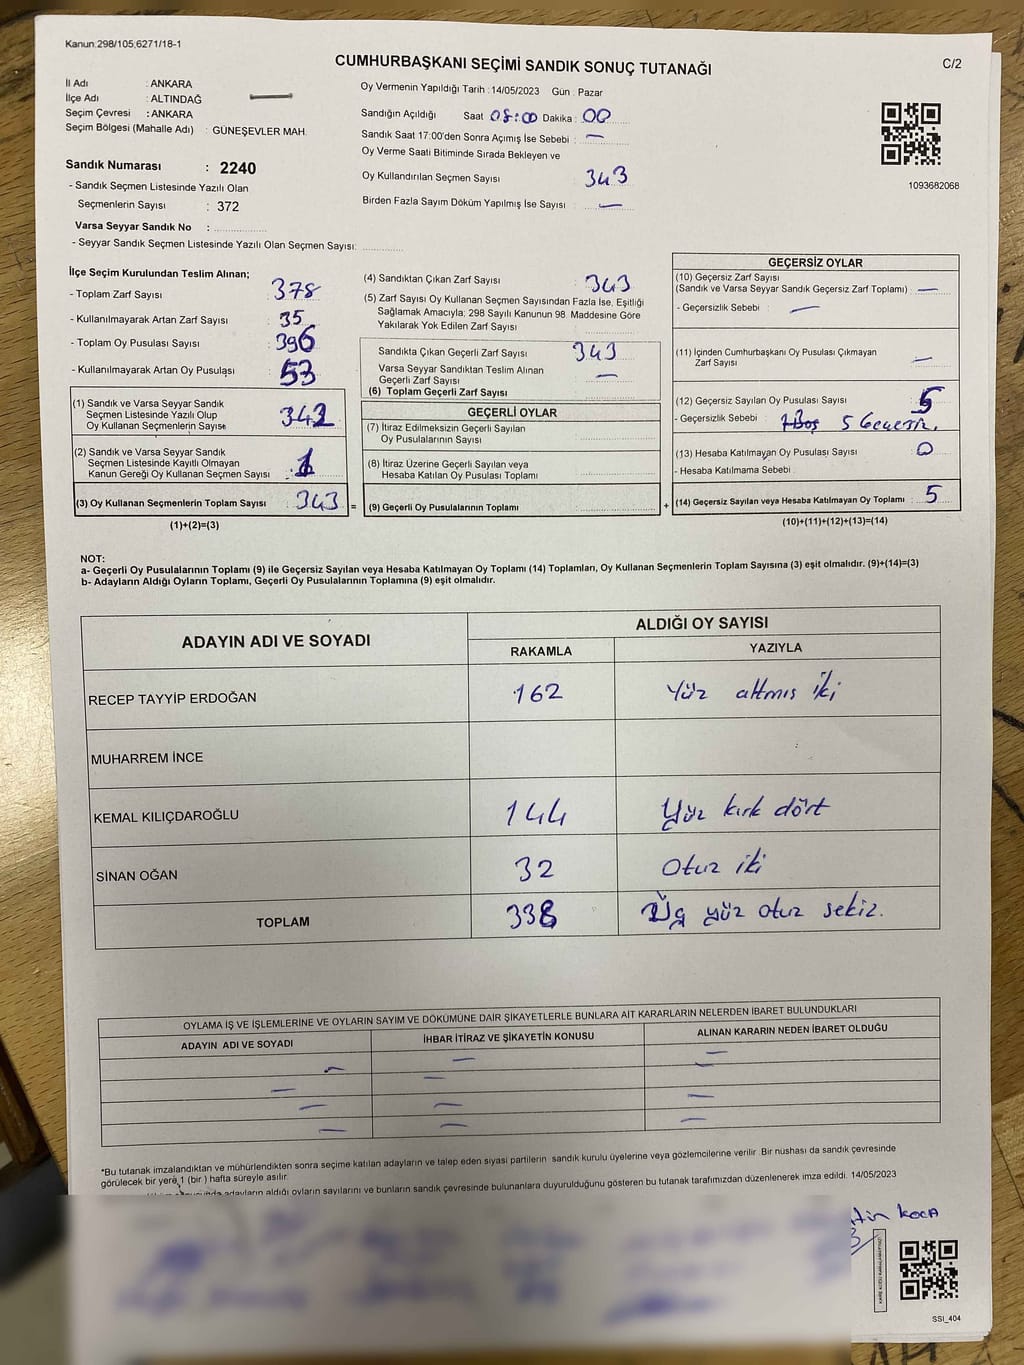 Kanun:298/105,6271/18-1
C/2
CUMHURBAŞKANI SEÇİMİ SANDIK SONUÇ TUTANAĞI
İl Adı : ANKARA
İlçe Adı : ALTINDAĞ
Seçim Çevresi : ANKARA
Seçim Bölgesi (Mahalle Adı) : GÜNEŞEVLER MAH.
Sandık Numarası : 2240
- Sandık Seçmen Listesinde Yazılı Olan
Seçmenlerin Sayısı : 372
Varsa Seyyar Sandık No :
- Seyyar Sandık Seçmen Listesinde Yazılı Olan Seçmen Sayısı:
Oy Vermenin Yapıldığı Tarih : 14/05/2023 Gün : Pazar
Sandığın Açıldığı Saat 08:00 Dakika : 00
Sandık Saat 17:00'den Sonra Açımış İse Sebebi : —
Oy Verme Saati Bitiminde Sırada Bekleyen ve
Oy Kullandırılan Seçmen Sayısı 343
Birden Fazla Sayım Döküm Yapılmış İse Sayısı : —
1093682068
İlçe Seçim Kurulundan Teslim Alınan;
- Toplam Zarf Sayısı : 378
- Kullanılmayarak Artan Zarf Sayısı : 35
- Toplam Oy Pusulası Sayısı : 396
- Kullanılmayarak Artan Oy Pusulası : 53
(1) Sandık ve Varsa Seyyar Sandık
Seçmen Listesinde Yazılı Olup
Oy Kullanan Seçmenlerin Sayısı : 342
(2) Sandık ve Varsa Seyyar Sandık
Seçmen Listesinde Kayıtlı Olmayan
Kanun Gereği Oy Kullanan Seçmen Sayısı : 1
(3) Oy Kullanan Seçmenlerin Toplam Sayısı : 343 =
(1)+(2)=(3)
(4) Sandıktan Çıkan Zarf Sayısı : 343
(5) Zarf Sayısı Oy Kullanan Seçmen Sayısından Fazla İse, Eşitliği
Sağlamak Amacıyla; 298 Sayılı Kanunun 98. Maddesine Göre
Yakılarak Yok Edilen Zarf Sayısı
Sandıkta Çıkan Geçerli Zarf Sayısı 343
Varsa Seyyar Sandıktan Teslim Alınan —
Geçerli Zarf Sayısı
(6) Toplam Geçerli Zarf Sayısı
GEÇERLİ OYLAR
(7) İtiraz Edilmeksizin Geçerli Sayılan
Oy Pusulalarının Sayısı
(8) İtiraz Üzerine Geçerli Sayılan veya
Hesaba Katılan Oy Pusulası Toplamı
(9) Geçerli Oy Pusulalarının Toplamı +
GEÇERSİZ OYLAR
(10) Geçersiz Zarf Sayısı
(Sandık ve Varsa Seyyar Sandık Geçersiz Zarf Toplamı) : —
- Geçersizlik Sebebi : —
(11) İçinden Cumhurbaşkanı Oy Pusulası Çıkmayan
Zarf Sayısı —
(12) Geçersiz Sayılan Oy Pusulası Sayısı 5
- Geçersizlik Sebebi : 5 Geçersiz.
(13) Hesaba Katılmayan Oy Pusulası Sayısı : 0
- Hesaba Katılmama Sebebi
(14) Geçersiz Sayılan veya Hesaba Katılmayan Oy Toplamı : 5
(10)+(11)+(12)+(13)=(14)
NOT:
a- Geçerli Oy Pusulalarının Toplamı (9) ile Geçersiz Sayılan veya Hesaba Katılmayan Oy Toplamı (14) Toplamları, Oy Kullanan Seçmenlerin Toplam Sayısına (3) eşit olmalıdır. (9)+(14)=(3)
b- Adayların Aldığı Oyların Toplamı, Geçerli Oy Pusulalarının Toplamına (9) eşit olmalıdır.
ADAYIN ADI VE SOYADI ALDIĞI OY SAYISI
RAKAMLA YAZIYLA
RECEP TAYYİP ERDOĞAN 162 Yüz altmış iki
MUHARREM İNCE
KEMAL KILIÇDAROĞLU 144 Yüz kırk dört
SİNAN OĞAN 32 Otuz iki
TOPLAM 338 Üç yüz otuz sekiz.
OYLAMA İŞ VE İŞLEMLERİNE VE OYLARIN SAYIM VE DÖKÜMÜNE DAİR ŞİKAYETLERLE BUNLARA AİT KARARLARIN NELERDEN İBARET BULUNDUKLARI
ADAYIN ADI VE SOYADI İHBAR İTİRAZ VE ŞİKAYETİN KONUSU ALINAN KARARIN NEDEN İBARET OLDUĞU
*Bu tutanak imzalandıktan ve mühürlendikten sonra seçime katılan adayların ve talep eden siyasi partilerin sandık kurulu üyelerine veya gözlemcilerine verilir. Bir nüshası da sandık çevresinde
görülecek bir yere 1 (bir) hafta süreyle asılır.
adayların aldığı oyların sayılarını ve bunların sandık çevresinde bulunanlara duyurulduğunu gösteren bu tutanak tarafımızdan düzenlenerek imza edildi. 14/05/2023
KOCA
SSI_404